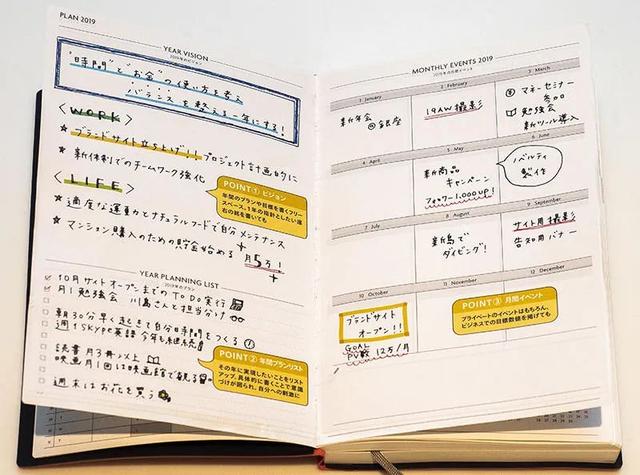 PLAN 2019
YEAR VISION
2019年のビジョン
"時間"と"お金"の使い方を考え
バランスを整える一年にする!
<WORK>
★ ブランドサイト立ち上げ!! プロジェクト計画的に
★ 新体制でのチームワーク強化
<LIFE>
★ 適度な運動とナチュラルフードで自分メンテナンス
★ マンション購入のための貯金始める
月5万!
POINT① ビジョン
年間のプランや目標を書くフリー
スペース。1年の指針としたい座
右の銘を書いても
YEAR PLANNING LIST
2019年のプラン
10月サイトオープンまでのTO DO実行
月1勉強会 川島さんと担当分け
朝30分早く起きて自分時間をつくる
週1 skype英語 今年も継続
読書 月3冊以上
映画 月1回は映画館で観る
週末はお花を買う
POINT② 年間プランリスト
その年に実現したいことをリスト
アップ。具体的に書くことで意識
づけが図られ、自分への刺激に
MONTHLY EVENTS 2019
2019年の月間イベント
1 January
2 February
3 March
新年会
@銀座
19AW撮影
マネーセミナー
参加
勉強会
新ツール導入
4 April
5 May
6 June
新商品
キャンペーン
フォロワー1,000UP!
ノベルティ
製作
7 July
8 August
9 September
新島で
ダイビング!
サイト用撮影
告知用バナー
10 October
11 November
12 December
ブランドサイト
オープン!!
GOAL
PV数 12万/月
POINT③ 月間イベント
プライベートのイベントはもちろん、
ビジネスでの目標数値を掲げても